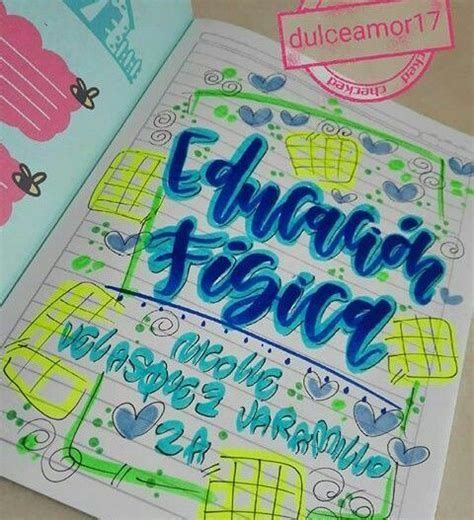 dulceamor17
checked
Educación
Física
NICOLLE
VELASQUEZ JARAMILLO
2A